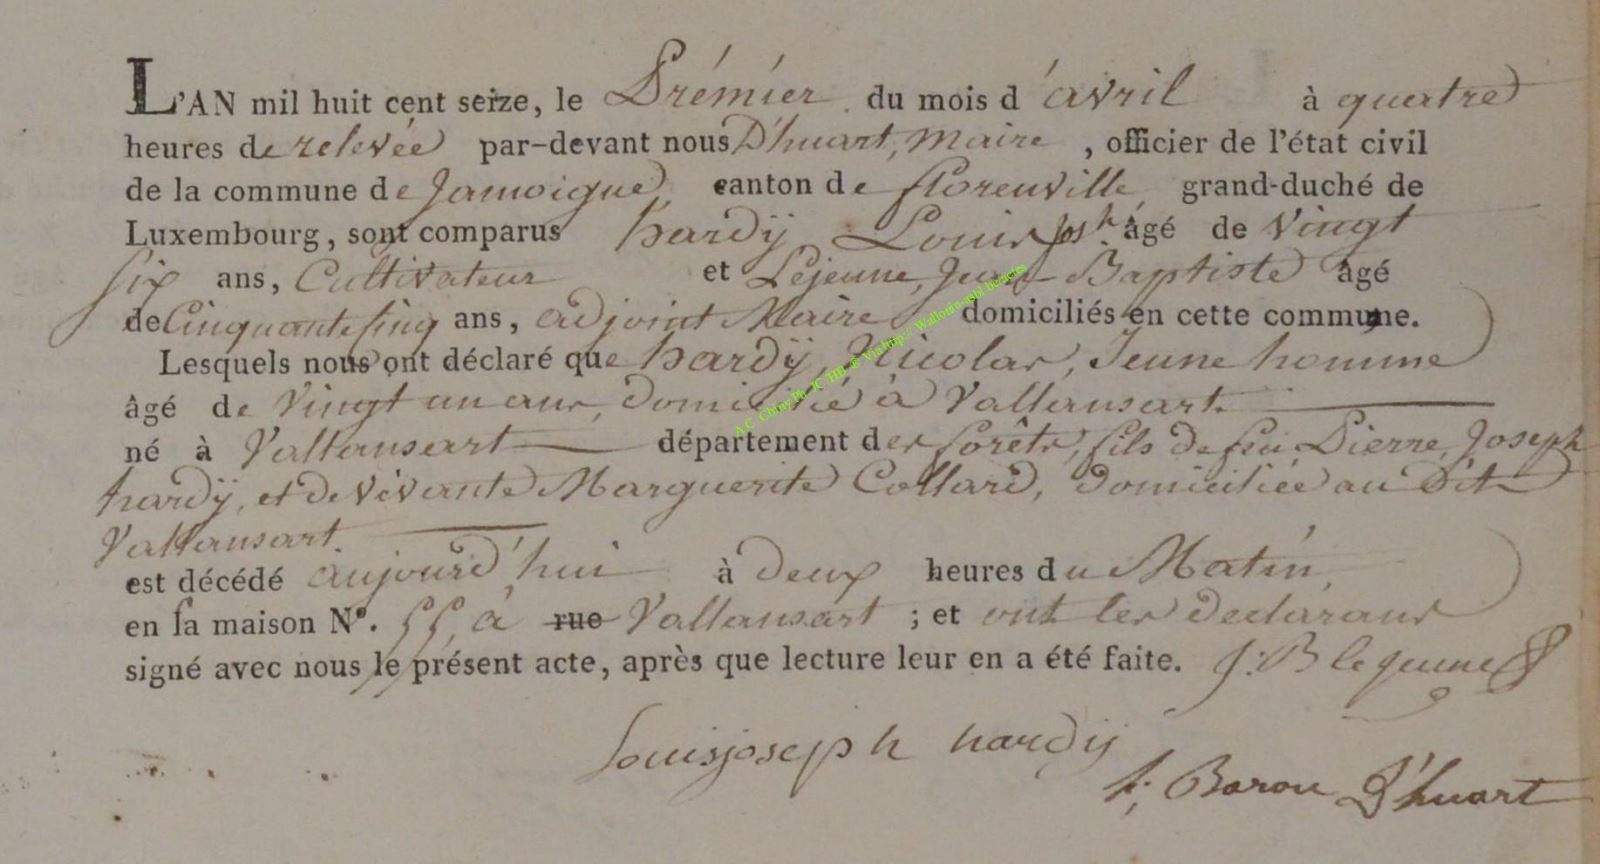 L'AN mil huit cent seize, le Prémiér du mois d'avril à quatre
heures de relevée par-devant nous D'huart, Maire, officier de l'état civil
de la commune de Jamoigne, canton de florenville, grand-duché de
Luxembourg, sont comparus hardÿ Louis Josh âgé de Vingt
six ans, Cultivateur et Lejeune, Jean Baptiste âgé
de Cinquante Cinq ans, adjoint Maire domiciliés en cette commune.
Lesquels nous ont déclaré que hardÿ, Nicolas, Jeune homme
âgé de Vingt un ans, domicilié à Vallansart.
né à Vallansart département des forêts, fils de feu Pierre, Joseph
hardÿ, et de vivante Marguerite Collard, domiciliée au dit
Vallansart.
est décédé aujourd'hui à deux heures du Matin,
en sa maison N°. 55, à rue Vallansart ; et ont les declarans
signé avec nous le présent acte, après que lecture leur en a été faite. J: B lejeune
Louis joseph hardÿ
h; Baron D'huart